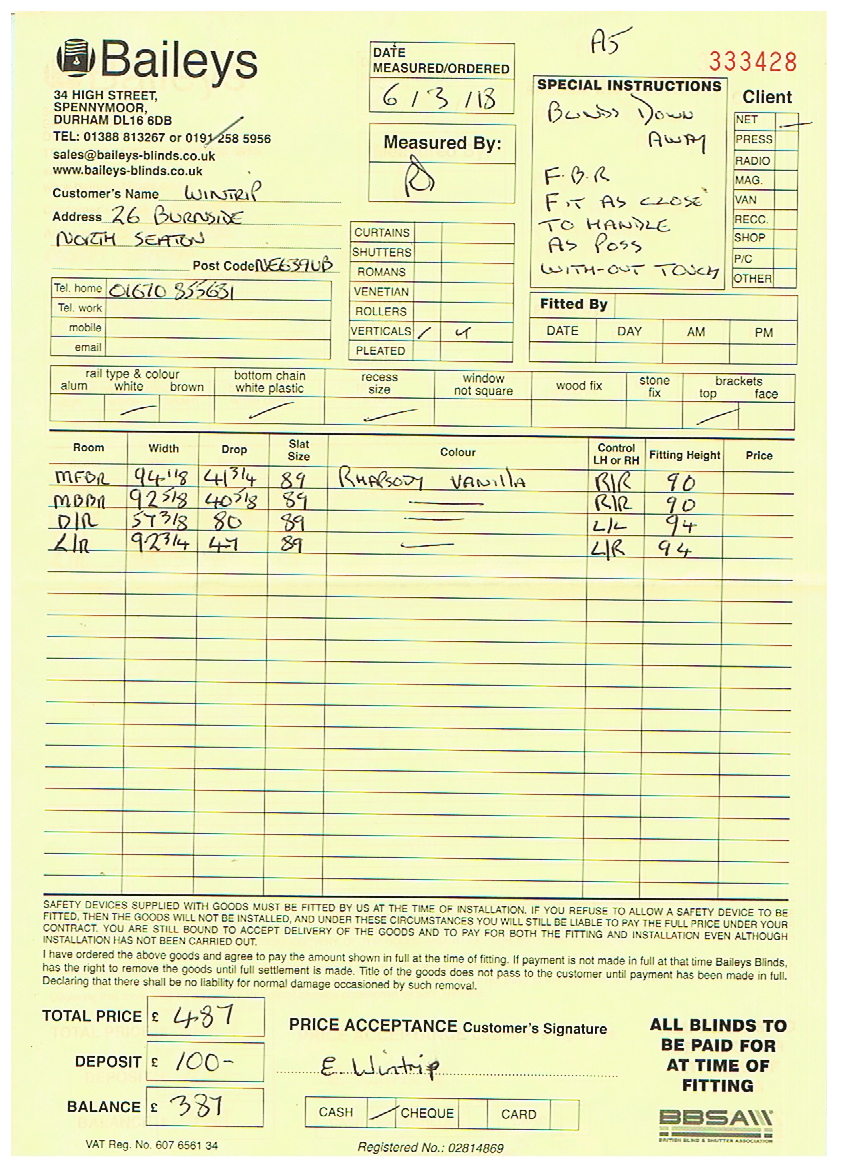 A5
333428
Baileys
34 HIGH STREET,
SPENNYMOOR,
DURHAM DL16 6DB
TEL: 01388 813267 or 0191 258 5956
sales@baileys-blinds.co.uk
www.baileys-blinds.co.uk
Customer's Name WINTRIP
Address 26 BURNSIDE
NORTH SEATON
Post Code NE639UB
Tel. home 01670 855631
Tel. work
mobile
email
DATE
MEASURED/ORDERED
6/3/18
Measured By:
CURTAINS
SHUTTERS
ROMANS
VENETIAN
ROLLERS
VERTICALS / 4
PLEATED
SPECIAL INSTRUCTIONS
BLINDS DOWN
AWAY
F.B.R
FIT AS CLOSE
TO HANDLE
AS POSS
WITH-OUT TOUCH
Client
NET
PRESS
RADIO
MAG.
VAN
RECC.
SHOP
P/C
OTHER
Fitted By
DATE DAY AM PM
rail type & colour
alum white brown
bottom chain
white plastic
recess
size
window
not square
wood fix
stone
fix
brackets
top face
Room Width Drop Slat Size Colour Control LH or RH Fitting Height Price
MFBR 94 1/8 41 3/4 89 RHAPSODY VANILLA R/R 90
MBBR 92 5/8 40 5/8 89 R/R 90
D/R 57 3/8 80 89 L/L 94
L/R 92 3/4 47 89 L/R 94
SAFETY DEVICES SUPPLIED WITH GOODS MUST BE FITTED BY US AT THE TIME OF INSTALLATION. IF YOU REFUSE TO ALLOW A SAFETY DEVICE TO BE
FITTED, THEN THE GOODS WILL NOT BE INSTALLED, AND UNDER THESE CIRCUMSTANCES YOU WILL STILL BE LIABLE TO PAY THE FULL PRICE UNDER YOUR
CONTRACT. YOU ARE STILL BOUND TO ACCEPT DELIVERY OF THE GOODS AND TO PAY FOR BOTH THE FITTING AND INSTALLATION EVEN ALTHOUGH
INSTALLATION HAS NOT BEEN CARRIED OUT.
I have ordered the above goods and agree to pay the amount shown in full at the time of fitting. If payment is not made in full at that time Baileys Blinds,
has the right to remove the goods until full settlement is made. Title of the goods does not pass to the customer until payment has been made in full.
Declaring that there shall be no liability for normal damage occasioned by such removal.
TOTAL PRICE £ 487
DEPOSIT £ 100-
BALANCE £ 387
PRICE ACCEPTANCE Customer's Signature
E. Wintrip
CASH CHEQUE CARD
ALL BLINDS TO
BE PAID FOR
AT TIME OF
FITTING
BBSA
BRITISH BLIND & SHUTTER ASSOCIATION
VAT Reg. No. 607 6561 34
Registered No.: 02814869